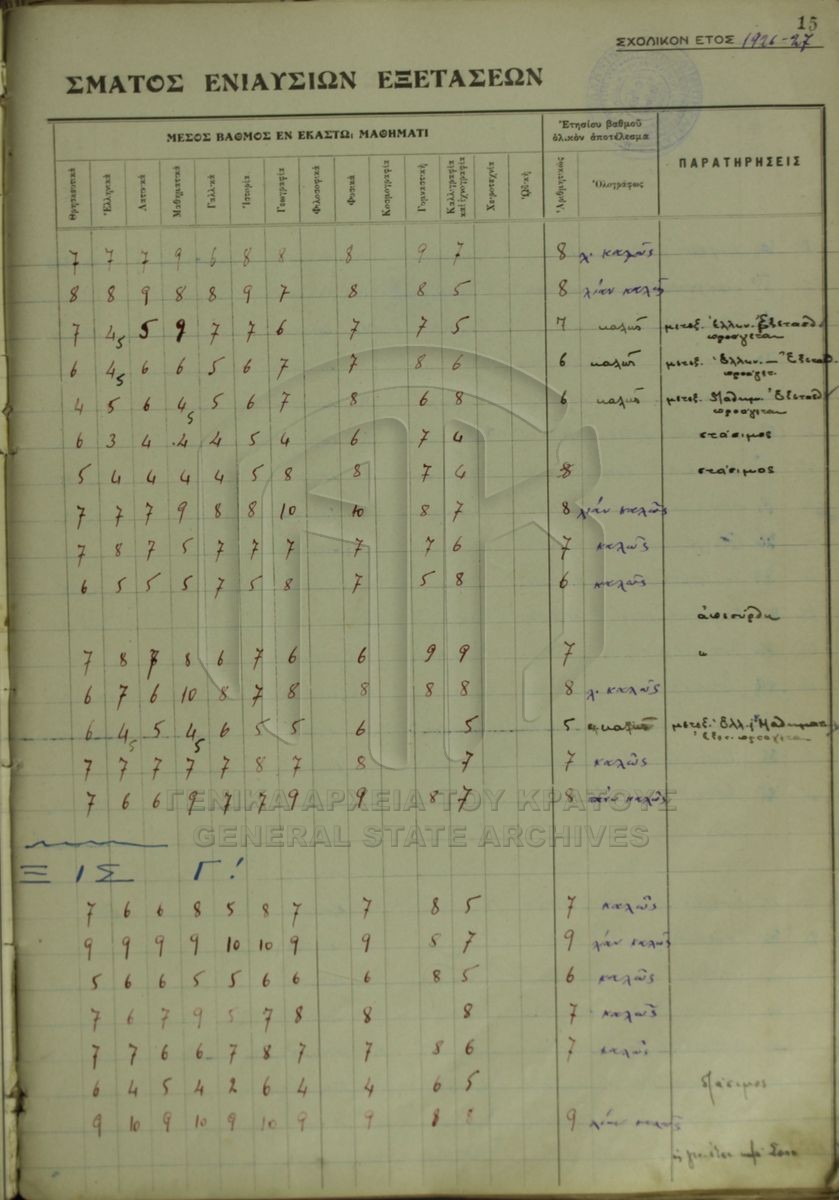 15
ΣΧΟΛΙΚΟΝ ΕΤΟΣ 1926-27
ΣΜΑΤΟΣ ΕΝΙΑΥΣΙΩΝ ΕΞΕΤΑΣΕΩΝ
ΜΕΣΟΣ ΒΑΘΜΟΣ ΕΝ ΕΚΑΣΤΩι ΜΑΘΗΜΑΤΙ
Ἐτησίου βαθμοῦ ὁλικὸν ἀποτέλεσμα
ΠΑΡΑΤΗΡΗΣΕΙΣ
Θρησκευτικά Ἑλληνικά Λατινικά Μαθηματικά Γαλλικά Ἱστορία Γεωγραφία Φιλοσοφικά Φυσικά Κοσμογραφία Γυμναστική Καλλιγραφία καὶ ἰχνογραφία Χειροτεχνία Ὠδική Ἀριθμητικῶς Ὁλογράφως
7 7 7 9 6 8 8 8 9 7 8 λ. καλῶς
8 8 9 8 8 9 7 8 8 5 8 λίαν καλῶς
7 4,5 5 9 7 7 6 7 7 5 7 καλῶς μετεξ. Ἑλλην.
6 4,5 6 6 5 6 7 7 8 6 6 καλῶς μετεξ. Ἑλλην.
4 5 6 4,5 5 6 7 8 6 8 6 καλῶς μετεξ. Μαθημ.
6 3 4 4 4 5 4 6 7 4 στάσιμος
5 4 4 4 4 5 8 8 7 4 8 στάσιμος
7 7 7 9 8 8 10 10 8 7 8 λίαν καλῶς
7 8 7 5 7 7 7 7 7 6 7 καλῶς
6 5 5 5 7 5 8 7 5 8 6 καλῶς
ἀπεσύρθη
7 8 7 8 6 7 6 6 9 9 7 "
6 7 6 10 8 7 8 8 8 8 8 λ. καλῶς
6 4,5 5 4,5 6 5 5 6 5 5 μετεξ.
7 7 7 7 7 8 7 8 7 7 καλῶς
7 6 6 9 7 7 9 9 8 7 8 καλῶς
ΓΕΝΙΚΑ ΑΡΧΕΙΑ ΤΟΥ ΚΡΑΤΟΥΣ
GENERAL STATE ARCHIVES
ΞΙΣ Γ!
7 6 6 8 5 8 7 7 8 5 7 καλῶς
9 9 9 9 10 10 9 9 8 7 9 λίαν καλῶς
5 6 6 5 5 6 6 6 8 5 6 καλῶς
7 6 7 9 5 7 8 8 8 7 καλῶς
7 7 6 6 7 8 7 7 8 6 7 καλῶς
6 4 5 4 2 6 4 4 6 5 στάσιμος
9 10 9 10 9 10 9 9 8 8 9 λίαν καλῶς